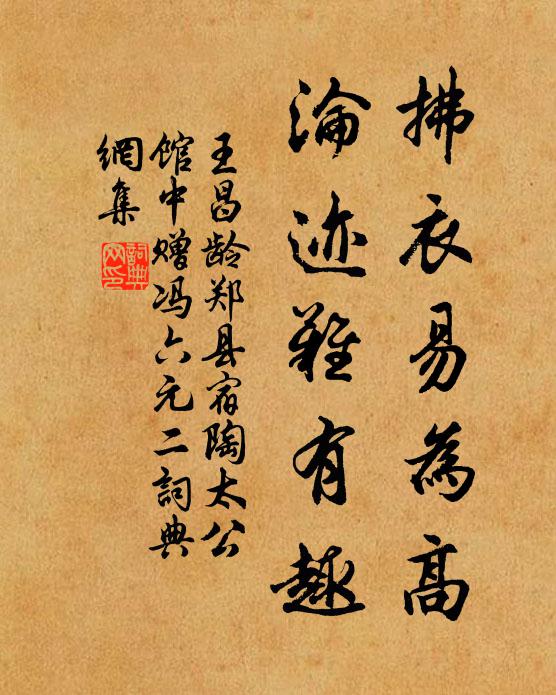 拂衣易為高
淪迹難有趣
王昌龄郑县宿陶太公
馆中赠冯六元二詞典
網集
詞典
网印